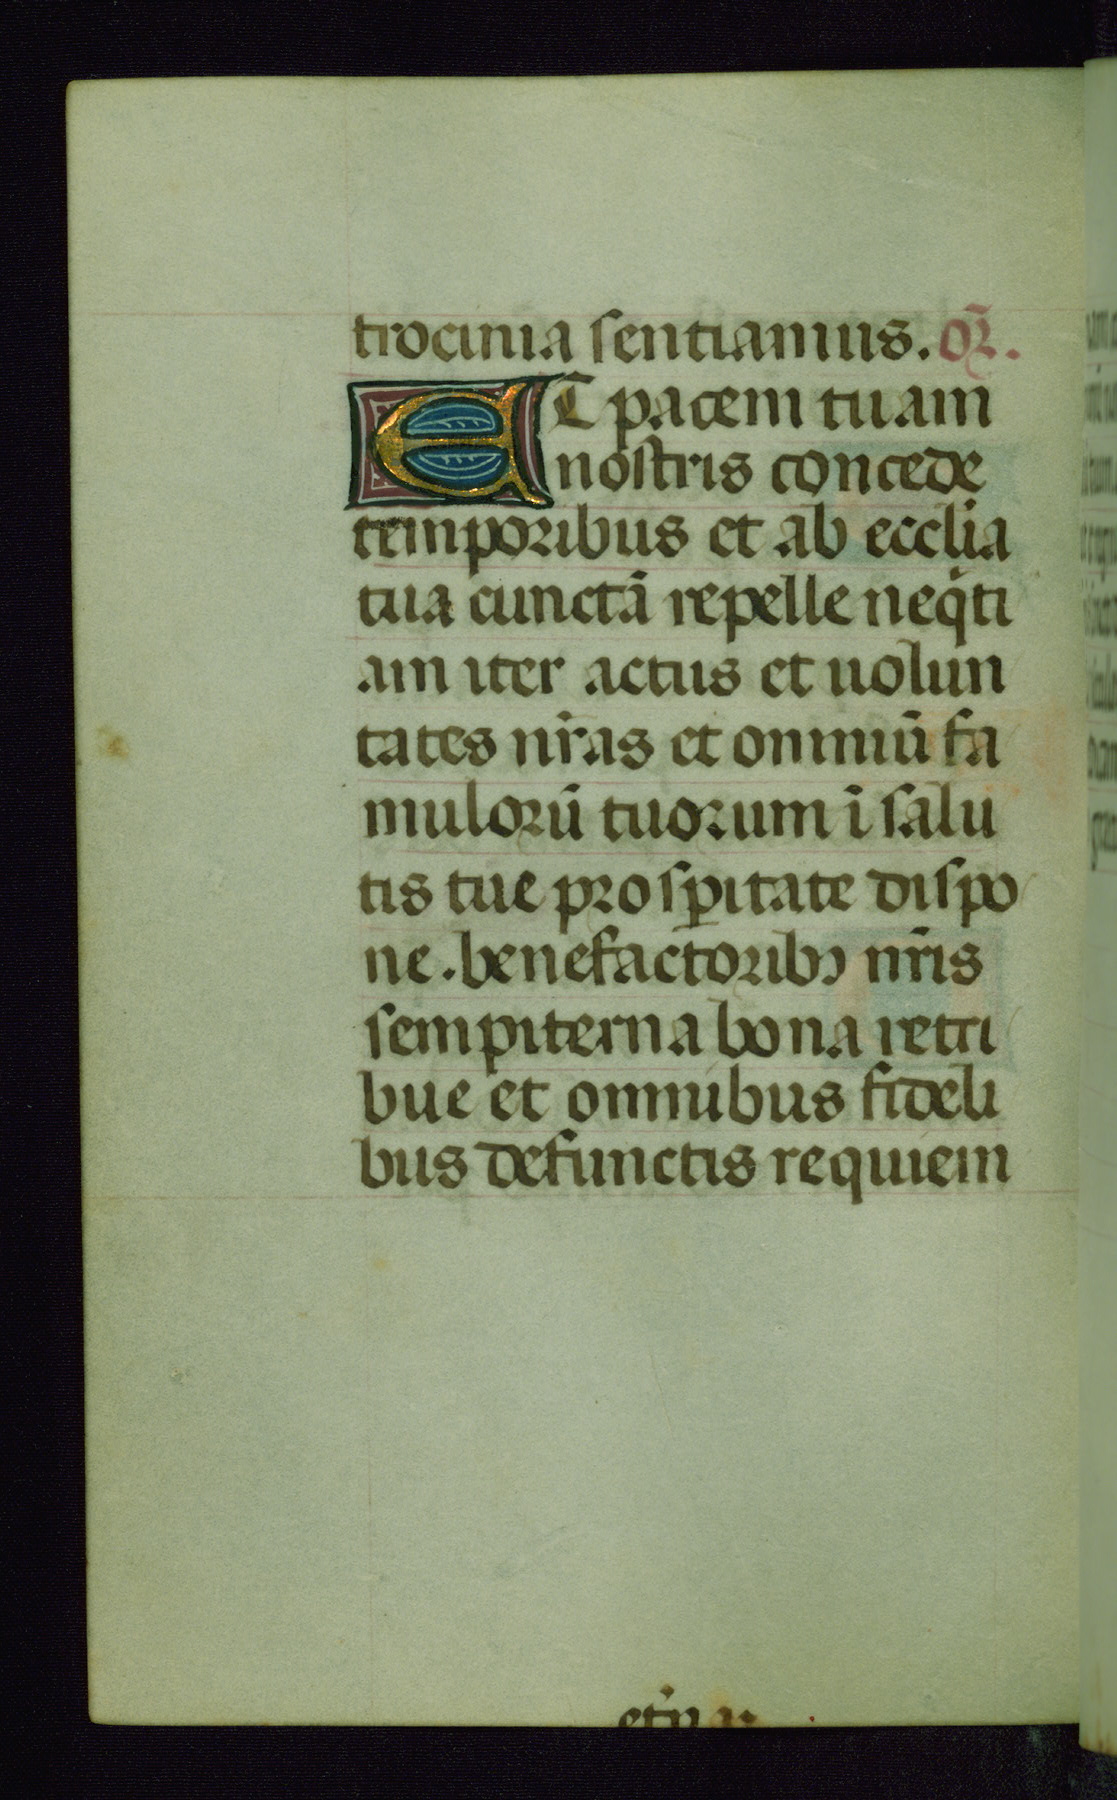 trocinia sentiamus. or̃.
ET pacem tuam
nostris concede
temporibus et ab ecclia
tua cunctã repelle neqͥti
am iter actus et uolun
tates nr̃as et omniũ fa
mulorũ tuorum ĩ salu
tis tue prosꝑitate dispo
ne. benefactoribꝫ nr̃is
sempiterna bona retri
bue et omnibus fideli
bus defunctis requiem